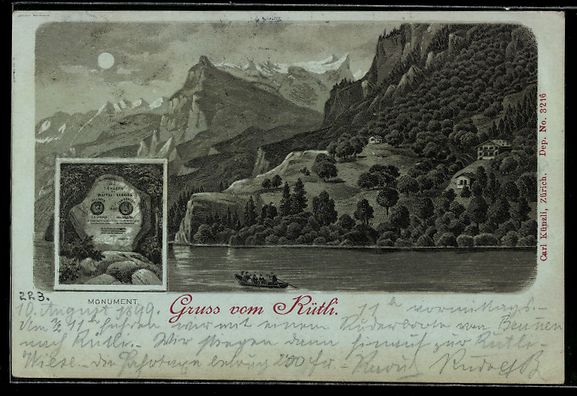 MONUMENT.
Gruss vom Rütli.
Carl Künzli, Zürich. Dep. No. 3216
223.
10. August 1899. 11 h vormittags.
Um ¾ 11 h fuhren wir mit einem Ruderboote von Brunnen
nach Rütli. Wir stiegen dann hinauf zur Rütli-
Wiese. die Fahrtage betrug 2·50 Fr. Rudolf